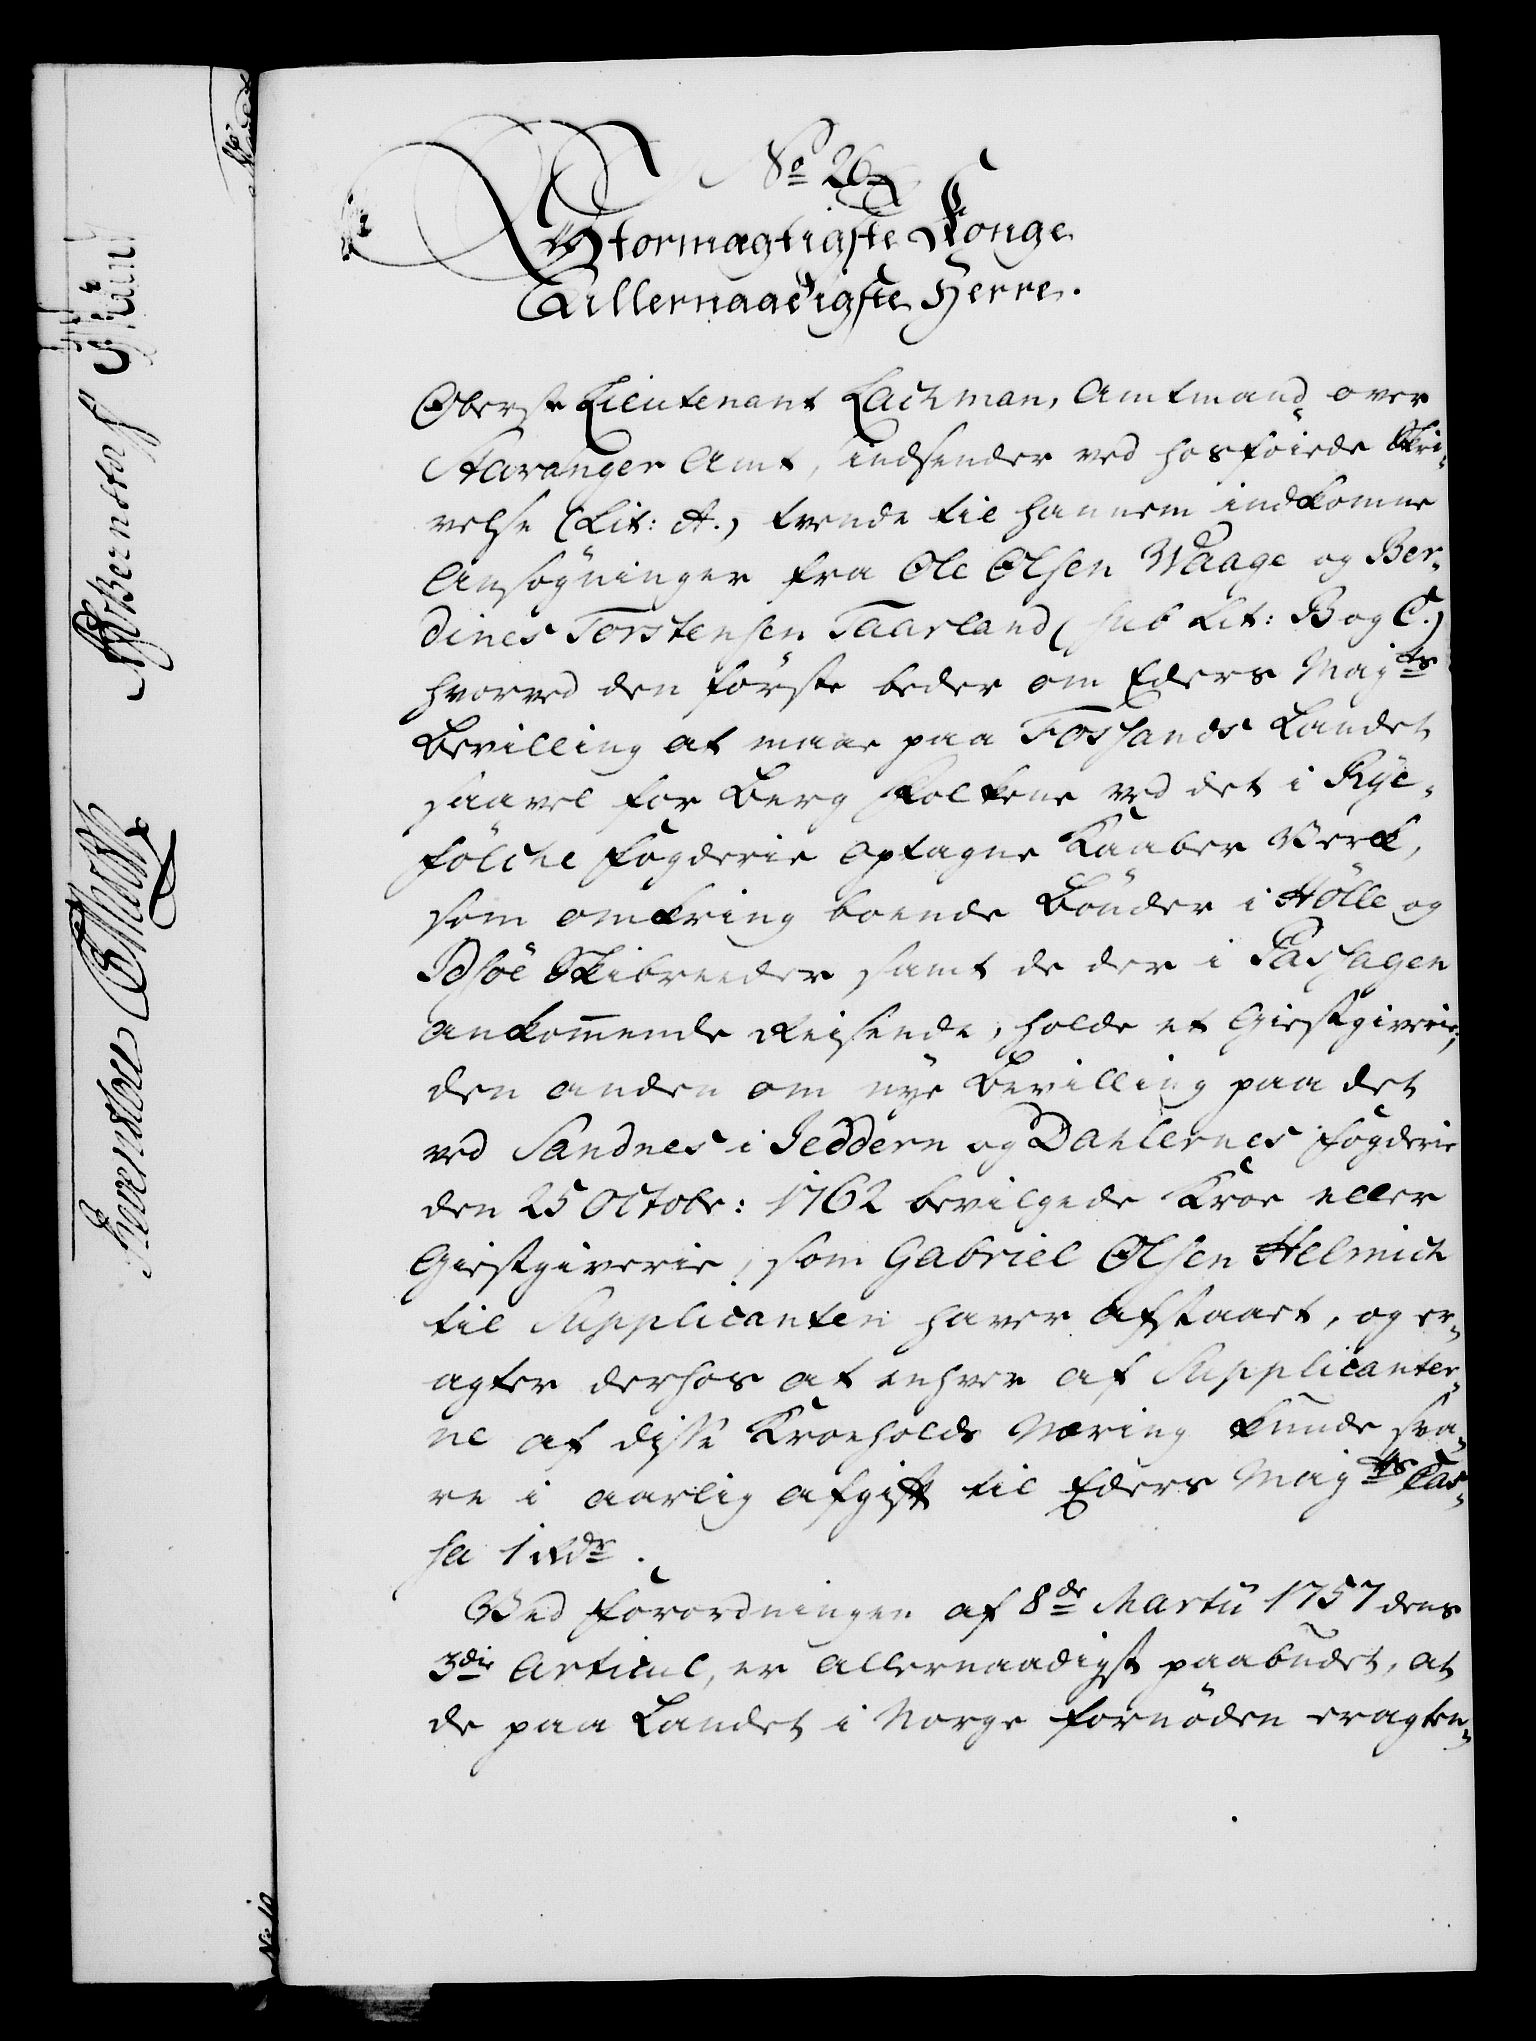 No 26
Stormægtigste Konge
Allernaadigste Herre.
Oberste Lieutenant Lachman, Amtmand over
Stavanger Amt, indsender ved hosföiede Skri-
velse (Lit: A.) tvende til hannem indkomne
Ansøgninger fra Ole Olsen Waage og Ber-
dines Torstensen Taarland (sub Lit: B og C.)
hvorved den förste beder om Eders Mayts
Bevilling at maae paa Fossands Landet
saavel for Berg Folkene ved det i Rye-
fölche Fogderie optagne Kaaber Verk,
som omkring boende Bönder i Hölle og
Idsöe Skibreeder samt de der i Passagen
ankommende Reisende, holde et Giestgiverie,
den anden om nye Bevilling paa det
ved Sandnes i Jeddern og Dahlernes Fogderie
den 25 Octobr: 1762 bevilgede Kroe eller
Giestgiverie, som Gabriel Olsen Helmich
til Supplicanten haver afstaaet, og er-
agter derhos at enhver af Supplicanter-
ne af disse Kroeholds Næring kunde sva-
re i aarlig afgift til Eders Mayts Cas-
sa 1 Rdr.
Ved Forordningen af 8de Martii 1757 dens
3die Articul, er allernaadigst paabudet, at
de paa Landet i Norge fornöden eragten-
Reventlou
Bernstorff